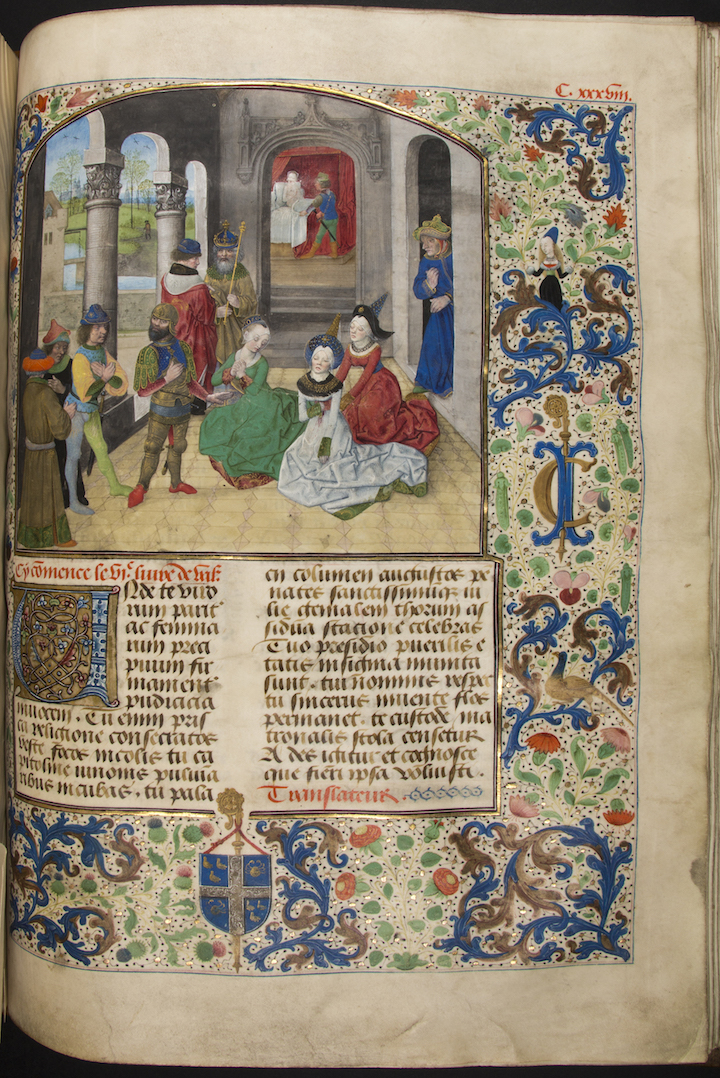 C. xxxviii.
Cy comence le vi.e liure de val.
Unde te viro
rum parit
ac femina
rum preci
puum fir
mament
pudicicia
inuocem. Tu enim pris
ca religione consecratos
veste focos incolis tu ca
pitoline iunonis puluia
ribus incubas. tu pala
cii columen augustos pe
nates sanctissimuq iu
lie genialem thorum as
sidua stacione celebras
Tuo presidio puerilis e
tatis insigma munita
sunt. tui nominis respec
tu sincerus iuuente flos
permanet. te custode ma
tronalis stola censetur
Ades igitur et cognosce
que fieri ipsa voluisti.
Translateur.